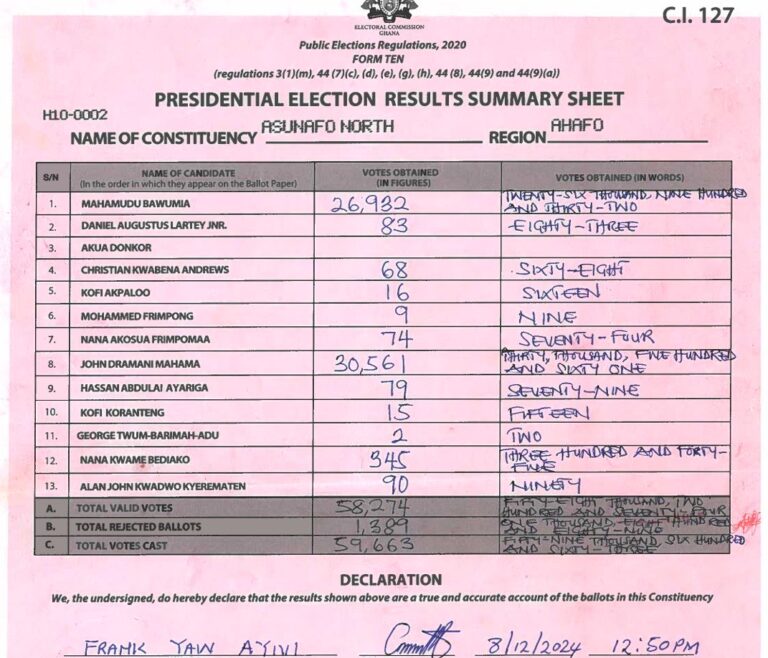 C.I. 127
ELECTORAL COMMISSION
GHANA
Public Elections Regulations, 2020
FORM TEN
(regulations 3(1)(m), 44 (7)(c), (d), (e), (g), (h), 44 (8), 44(9) and 44(9)(a))
PRESIDENTIAL ELECTION RESULTS SUMMARY SHEET
H10-0002
NAME OF CONSTITUENCY ASUNAFO NORTH REGION AHAFO
S/N NAME OF CANDIDATE (In the order in which they appear on the Ballot Paper) VOTES OBTAINED (IN FIGURES) VOTES OBTAINED (IN WORDS)
1. MAHAMUDU BAWUMIA 26,932 TWENTY-SIX THOUSAND, NINE HUNDRED AND THIRTY-TWO
2. DANIEL AUGUSTUS LARTEY JNR. 83 EIGHTY-THREE
3. AKUA DONKOR
4. CHRISTIAN KWABENA ANDREWS 68 SIXTY-EIGHT
5. KOFI AKPALOO 16 SIXTEEN
6. MOHAMMED FRIMPONG 9 NINE
7. NANA AKOSUA FRIMPOMAA 74 SEVENTY-FOUR
8. JOHN DRAMANI MAHAMA 30,561 THIRTY, THOUSAND, FIVE HUNDRED AND SIXTY ONE
9. HASSAN ABDULAI AYARIGA 79 SEVENTY-NINE
10. KOFI KORANTENG 15 FIFTEEN
11. GEORGE TWUM-BARIMAH-ADU 2 TWO
12. NANA KWAME BEDIAKO 345 THREE HUNDRED AND FORTY-FIVE
13. ALAN JOHN KWADWO KYEREMATEN 90 NINETY
A. TOTAL VALID VOTES 58,274 FIFTY-EIGHT THOUSAND, TWO HUNDRED AND SEVENTY-FOUR
B. TOTAL REJECTED BALLOTS 1,389 ONE THOUSAND, EIGHT HUNDRED AND EIGHTY-NINE
C. TOTAL VOTES CAST 59,663 FIFTY-NINE THOUSAND, SIX HUNDRED AND SIXTY-THREE
DECLARATION
We, the undersigned, do hereby declare that the results shown above are a true and accurate account of the ballots in this Constituency
FRANK YAW AYIVI 8/12/2024 12:50PM